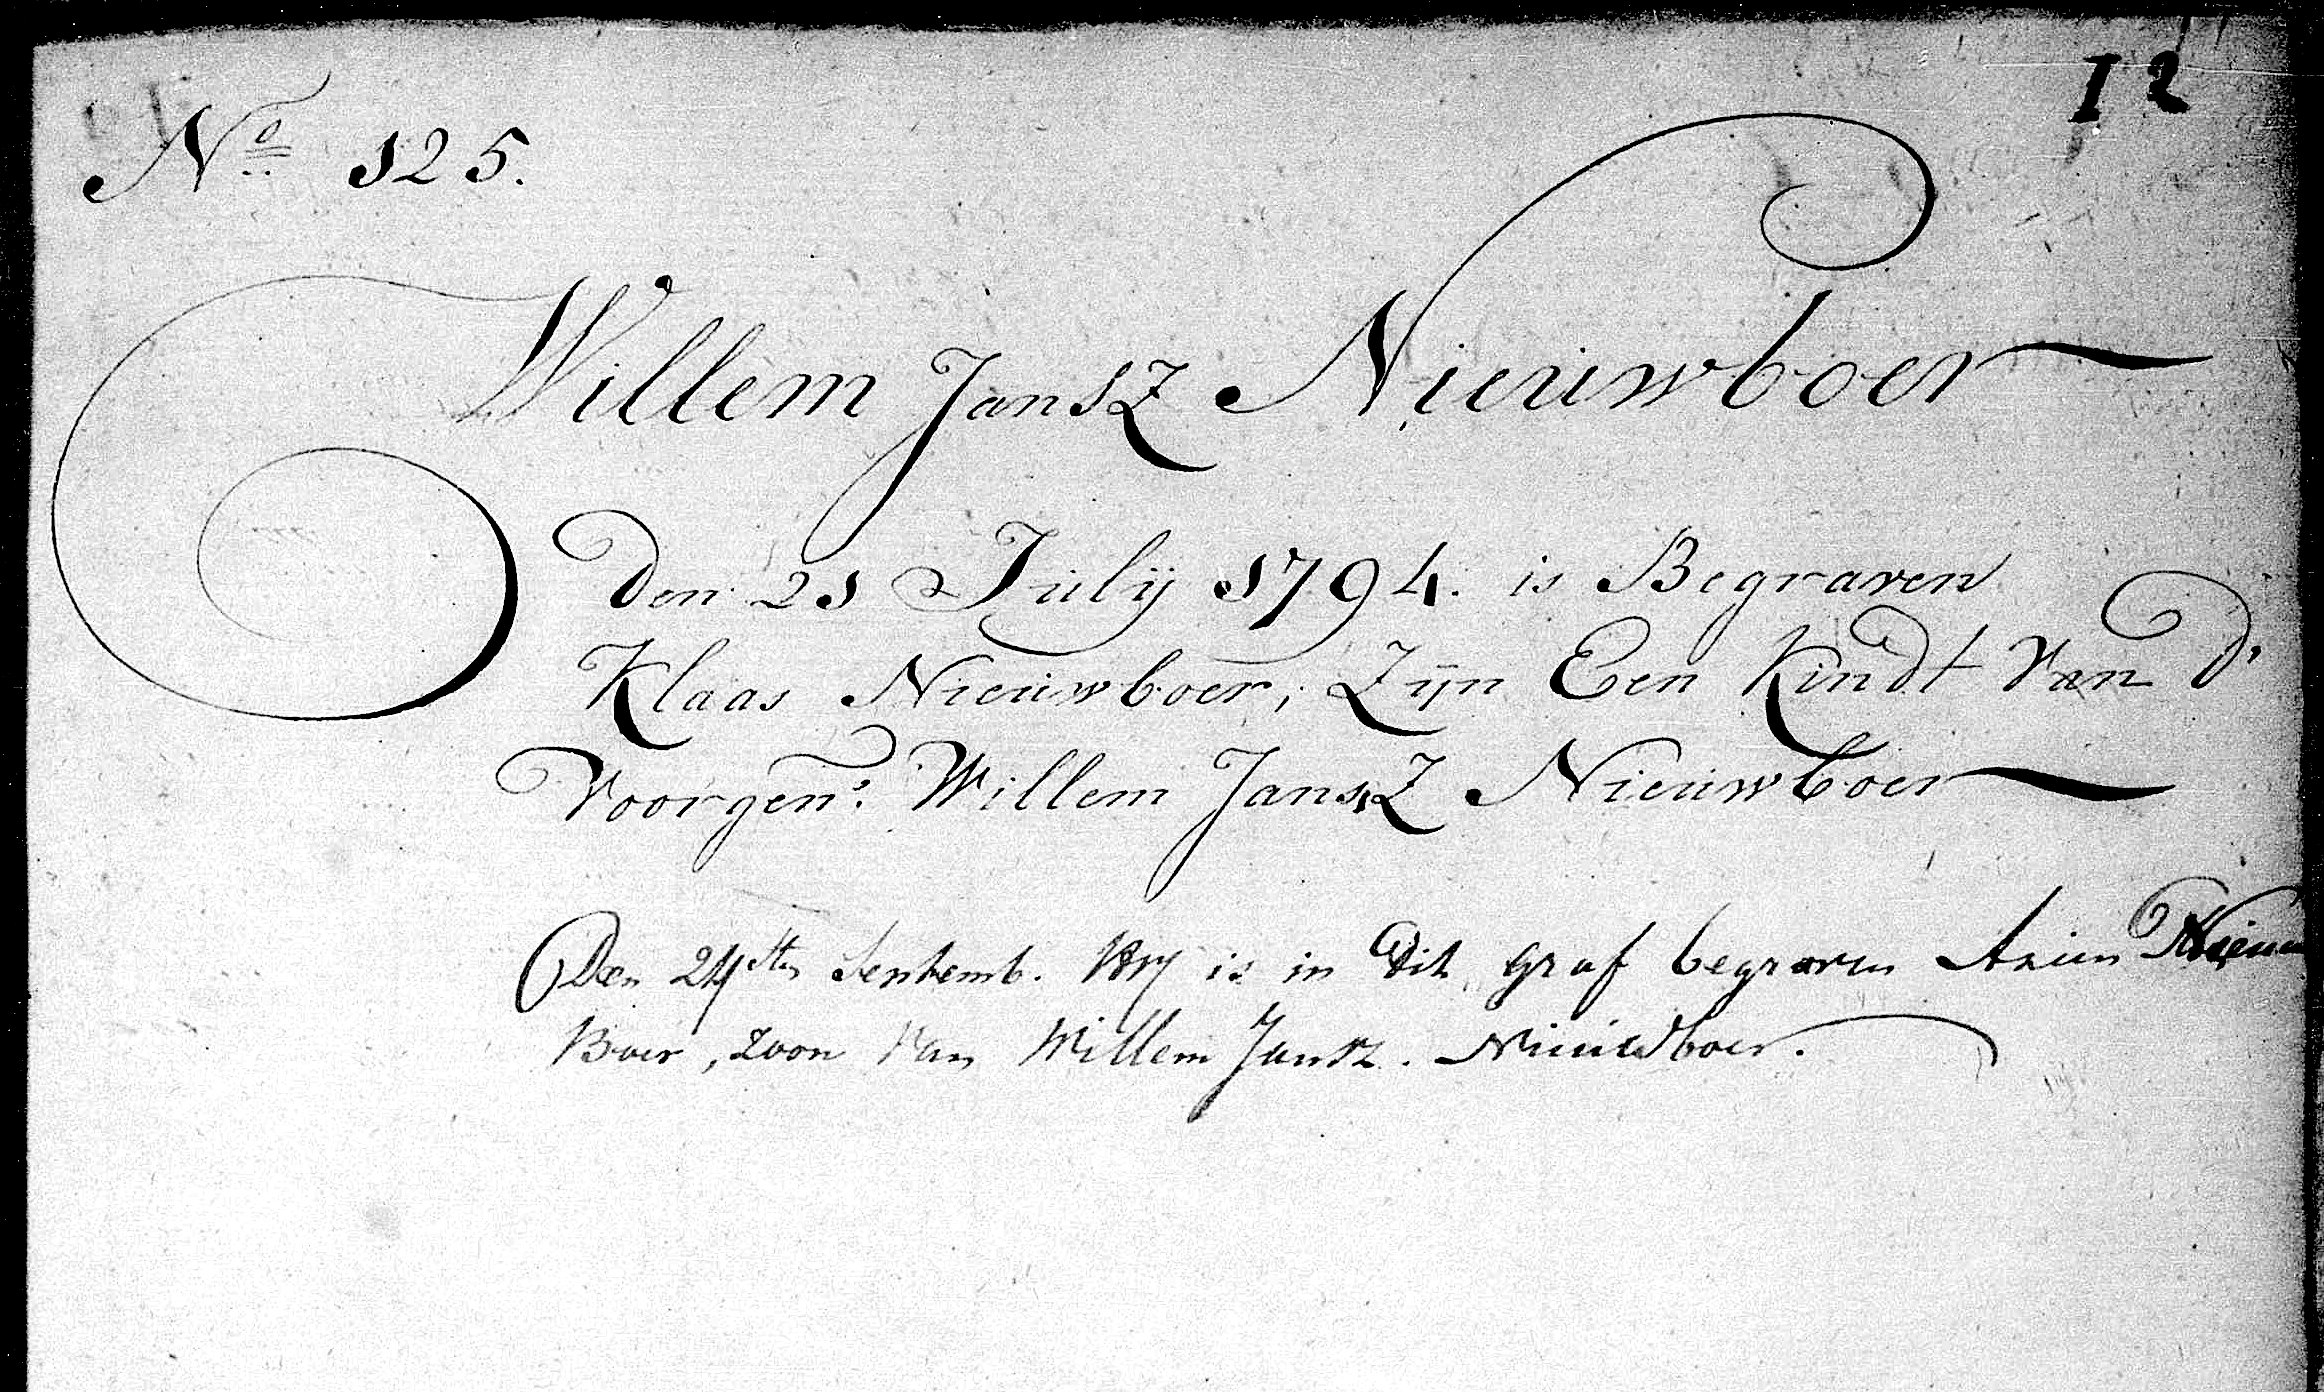 I2
No 125.
Willem Jansz Nieuwboer
Den 21 Julij 1794. is Begraven
Klaas Nieuwboer, Zijn Een Kindt van D'
Voorgen: Willem Jansz Nieuwboer
Den 24sten Septemb. is in dit graf begraven Arien
Boer, zoon van Willem Jansz. Nieuwboer.